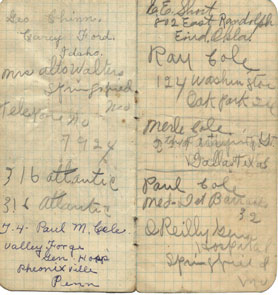 Geo Chinn
Carey Ford.
Idaho.
Mrs Alto Walters
Springfield
Mo
Telephone No
7924
316 Atlantic
316 Atlantic
T.4. Paul M. Cole
Valley Forge
Gen Hosp
Pheonixville
Penn
E. Short
802 East Randolph
Enid, Okla.
Ray Cole
124 Washington
Oak Park
Merle Cole
Dallas Texas
Paul Cole
Med- Det Barracks
32
O'Reilly Gen
Hospital
Springfield